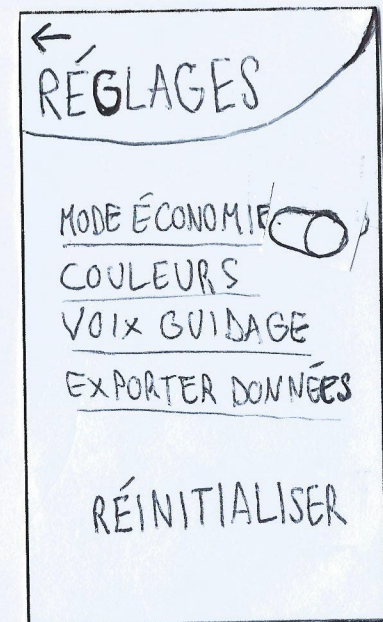 RÉGLAGES
MODE ÉCONOMIE
COULEURS
VOIX GUIDAGE
EXPORTER DONNÉES
RÉINITIALISER